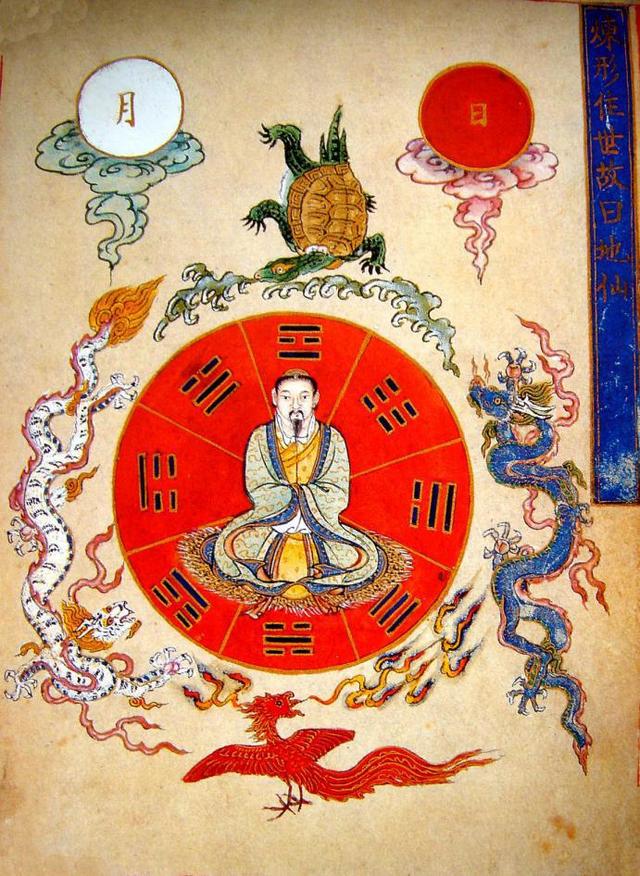 煉形住世故曰地仙
日
月